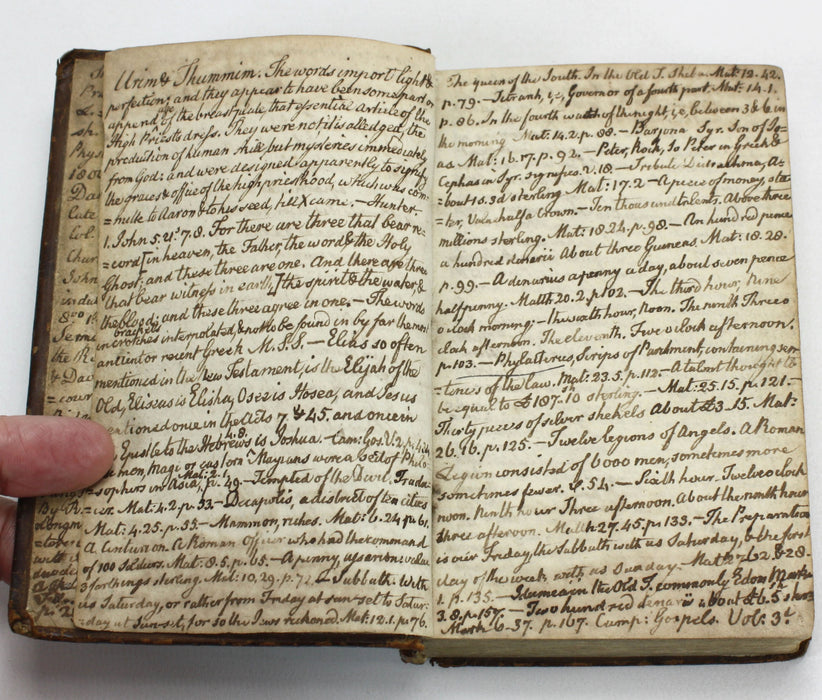 Urim & Thummim. The words import light &
perfection; and they appear to have been some part or
append age of the breast plate, that essential article of the
High Priests dress. They were not it is alledged, the
production of human skill but mysteries immediately
from God: and were designed apparently to signify
the graces & office of the high priesthood, which was com-
=mitte to Aaron & to his seed, till X came. — Hunter.
1. John 5. 7. 8. For there are three that bear re-
=cord [in heaven, the Father, the word & the Holy
Ghost; and these three are one. And there are three
that bear witness in earth,] the spirit & the water, &
the blood; and these three agree in one. — The words
in crotches brackets interpolated, & not to be found in by far the most
antient or recent Greek M.S.S. — Elias so often
mentioned in the New Testament, is the Elijah of the
Old, Eliseus is Elisha, Osee is Hosea, and Jesus
mentioned once in the Acts 7. & 45. and once in
Epistle to the Hebrews 4.8. is Joshua. Cam: Gos. V.2. p.
men, Magi or eastern Magians were a sect of Philo
=sophers in Asia, Mat: 2. p. 49. — Tempted of the Devil,
Mat: 4.2. p. 53. — Decapolis, a district of ten cities
Mat: 4.25. p. 55. — Mammon, riches. Mat: 6.24 p. 61.
A Centurion. A Roman Officer who had the command
of 100 Soldiers. Mat: 8.5. p. 65. — A penny, assarion value
3 farthings sterling. Mat: 10, 29. p. 72. — Sabbath. With
us Saturday, or rather from Friday at sun-set to Satur-
=day at Sun-set, for so the Jews reckoned. Mat: 12.1. p. 76.
The queen of the South. In the Old T. Sheba. Mat: 12.42.
p. 79. — Tetrarch, i,e, Governor of a fourth part. Mat: 14.1.
p. 86. In the fourth watch of the night, i,e, between 3 & 6 in
the morning Mat: 14.2. p. 88. — Barjona Syr. Son of Jo-
=as. Mat: 16.17. p. 92. — Peter, Rock, So Peter in Greek &
Cephas in Syr. signifies. v. 18. — Tribute Didrachma, A-
=bout 1s.3d sterling Mat: 17.2 — A piece of money, sta-
=ter, Value half a Crown. — Ten thousand talents. Above three
millions sterling. Mat: 18.24. p. 98. — An hundred pence
a hundred denarii About three Guineas. Mat: 18.28.
p. 99. — A denarius a penny a day, about seven pence
halfpenny. Matth 20.2. p. 102. — The third hour, Nine
o clock morning: — the sixth hour, Noon. The ninth Three o
clock afternoon. The eleventh. Five o clock afternoon.
p. 103. — Phylacteries, Scrips of Parchment, containing sen-
=tences of the law. Mat: 23.5. p. 112. — A talent thought to
be equal to £187-10 sterling. — Mat: 25.15. p. 121. —
Thirty pieces of silver shekels About £3.15. Mat:
26.16. p. 125. — Twelve legions of Angels. A Roman
Legion consisted of 6000 men, sometimes more
sometimes fewer. v. 54. — Sixth hour. Twelve o clock
noon. Ninth hour Three afternoon. About the ninth hour
three afteroon. Matth 27.45. p. 133. — The Preparation
is our Friday, the Sabbath with us Saturday, & the first
day of the week with us Sunday. — Math 27. 62. & 28-
1. p. 135. — Idumea, in the Old T. commonly Edom Mark
3.8. p. 157. — Two hund red denarii about £6.5
Mark 6-37. p. 167. Camp: Gospels. Vol: 3d